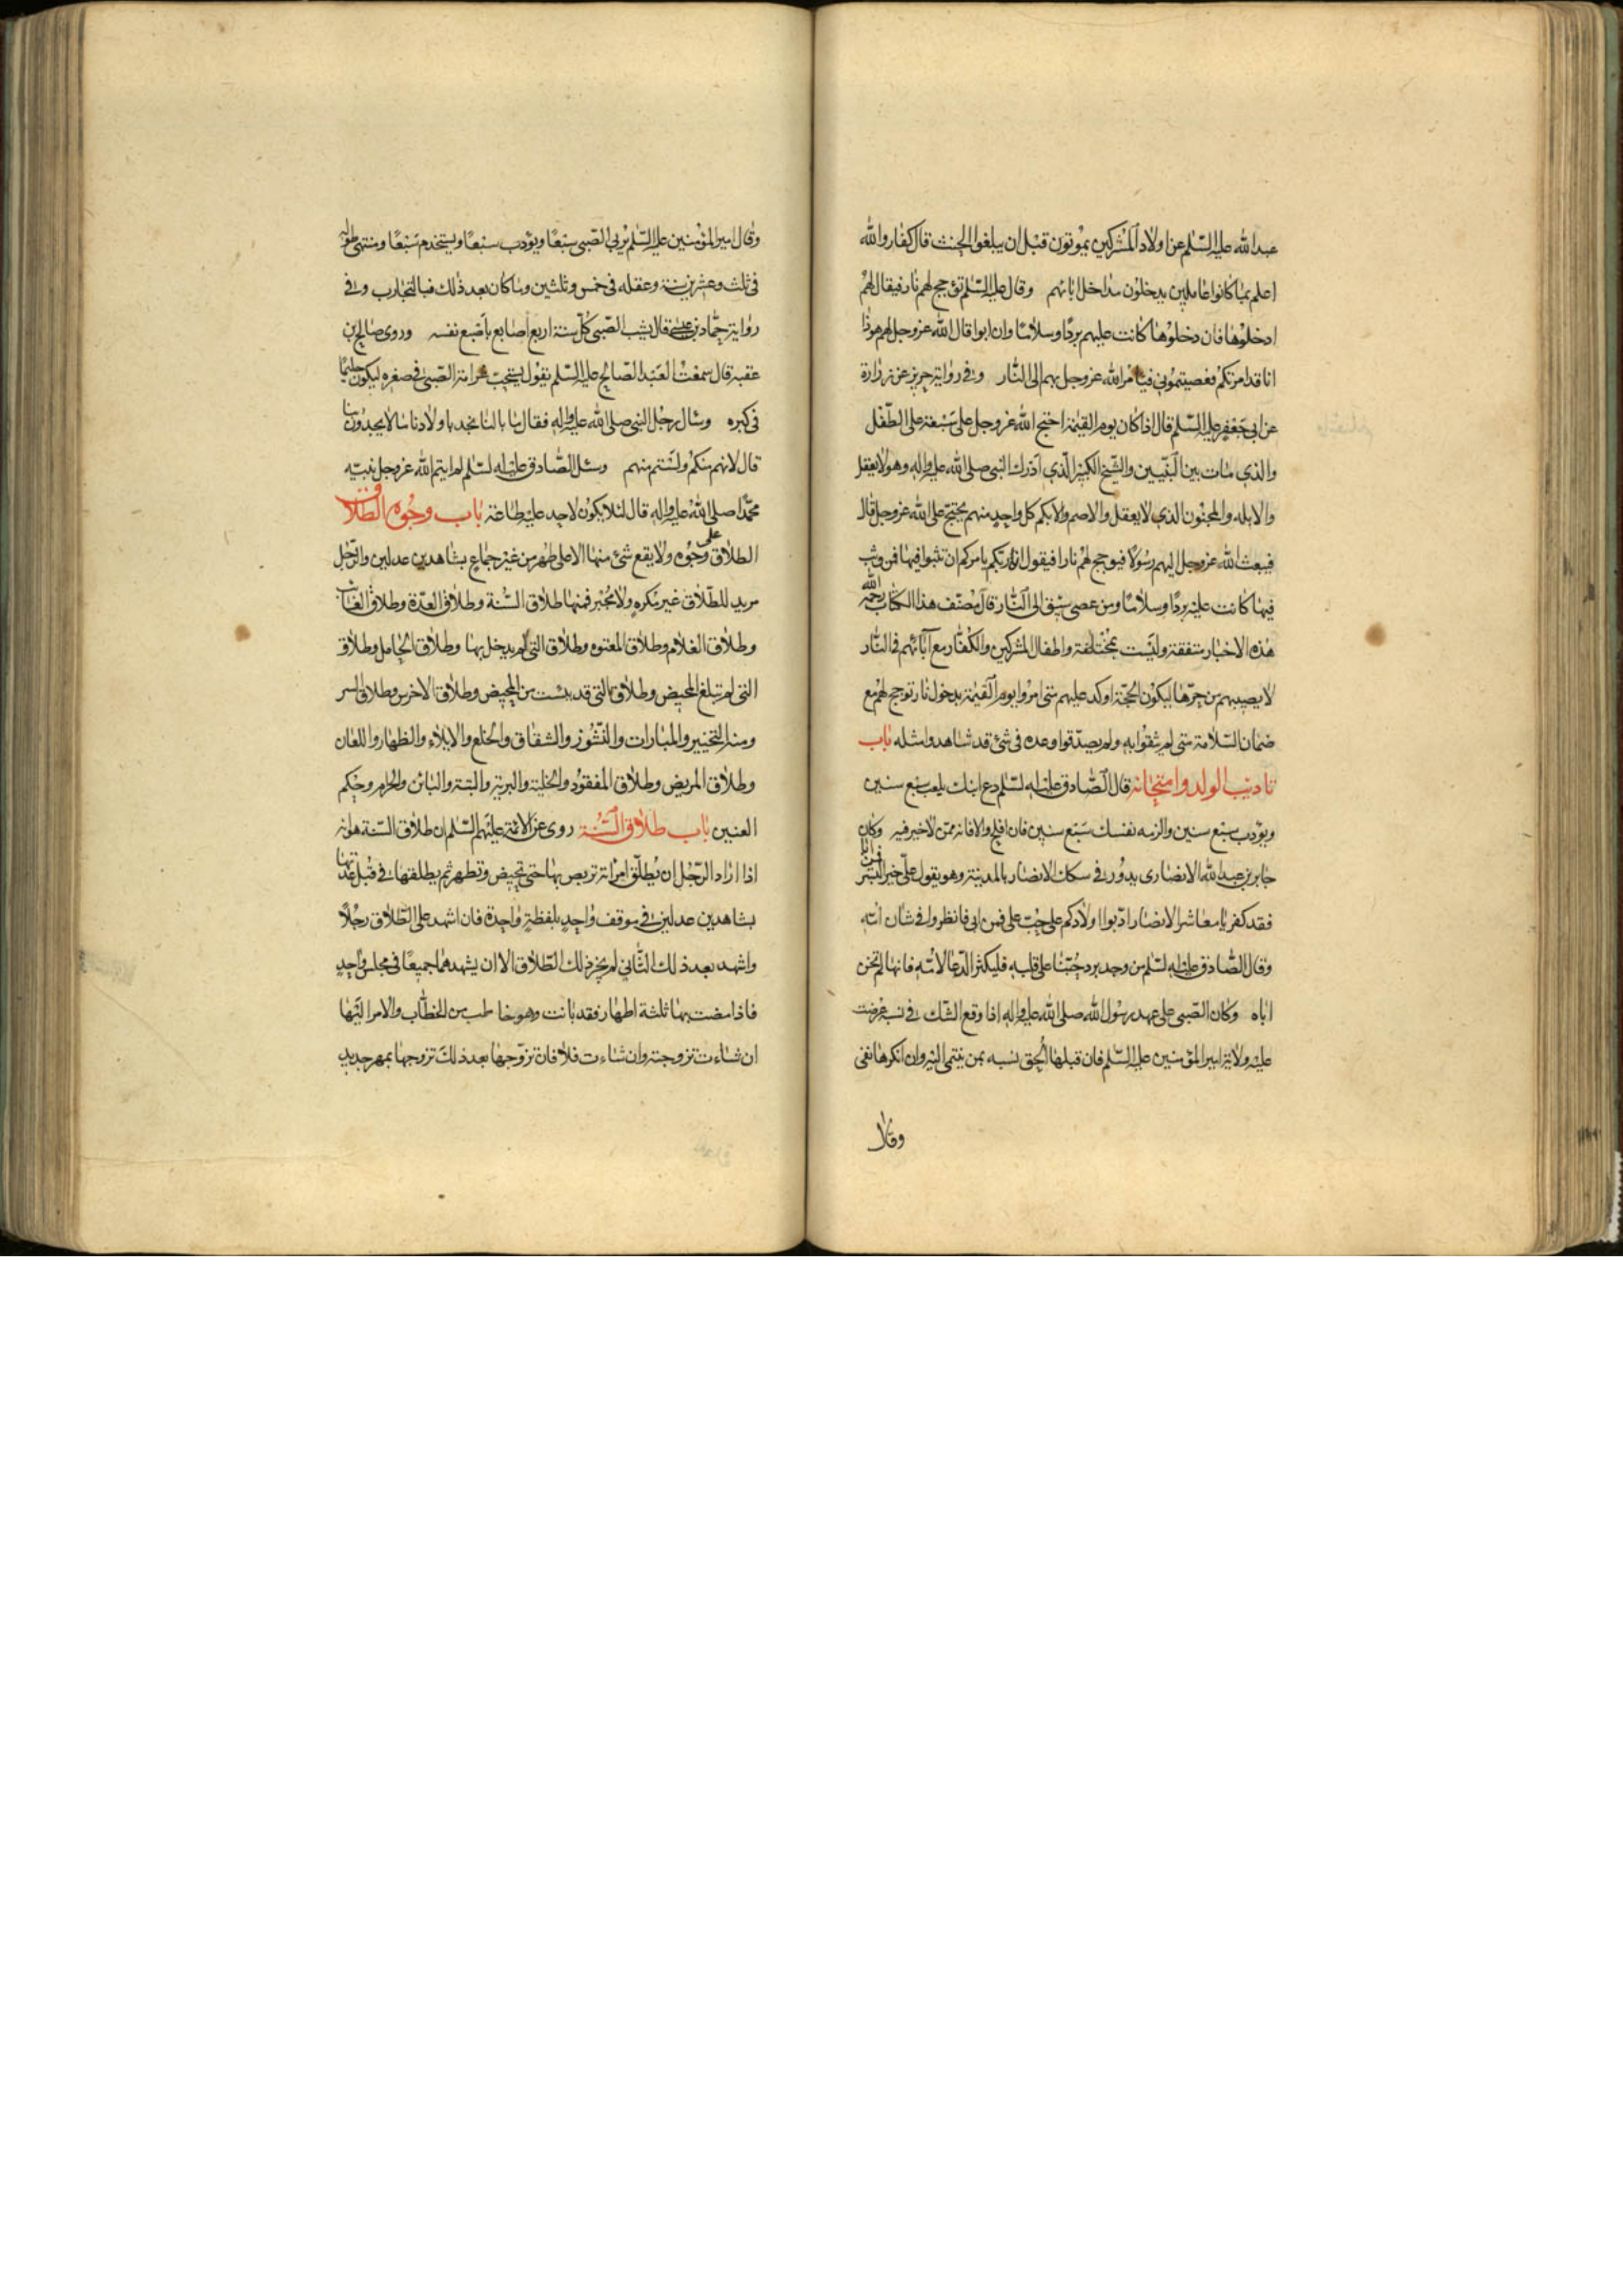 عبد الله عليه السلم عن اولاد المشركين يموتون قبل ان يبلغوا الحنث قال كفار والله
اعلم بما كانوا عاملين يدخلون مداخل ابائهم وقال عليه السلم تؤجج لهم نار فيقال لهم
ادخلوها فان دخلوها كانت عليهم بردا وسلاما وان ابوا قال الله عز وجل لهم هوذا
انا قد امرتكم فعصيتموني فيامر الله عز وجل بهم الى النار وفي رواية حريز عن زرارة
عن ابي جعفر عليه السلم قال اذا كان يوم القيمة احتج الله عز وجل على سبعة على الطفل
والذي مات بين النبيين والشيخ الكبير الذي ادرك النبي صلى الله عليه واله وهو لا يعقل
والابله والمجنون الذي لا يعقل والاصم والابكم كل واحد منهم يحتج على الله عز وجل قال
فيبعث الله عز وجل اليهم رسولا فيوجج لهم نارا فيقول ان ربكم يامركم ان تثبوا فيها فمن وثب
فيها كانت عليه بردا وسلاما ومن عصى سيق الى النار قال مصنف هذا الكتاب رحمه الله
هذه الاخبار متفقة وليست بمختلفة واطفال المشركين والكفار مع آبائهم في النار
لا يصيبهم من حرها ليكون الحجة اوكد عليهم متى امروا يوم القيمة بدخول نار توجج لهم مع
ضمان السلامة متى لم يثقوا به ولم يصدقوا وعده في شئ قد شاهدوا مثله باب
تاديب الولد وامتحانه قال الصادق عليه السلم دع ابنك يلعب سبع سنين
ويؤدب سبع سنين والزمه نفسك سبع سنين فان افلح والا فانه ممن لا خير فيه وكان
جابر بن عبد الله الانصارى يدور في سكك الانصار بالمدينة وهو يقول علي خير البشر فمن ابا
فقد كفر يا معاشر الانصار ادبوا اولادكم على حب علي فمن ابى فانظروا في شان امه
وقال الصادق عليه السلم من وجد برد حبنا على قلبه فليكثر الدعا لامه فانها لم تخن
اباه وكان الصبي على عهد رسول الله صلى الله عليه واله اذا وقع الشك في نسبه عرضت
عليه ولاية امير المؤمنين عليه السلم فان قبلها الحق نسبه بمن ينتمي اليه وان انكرها نفى
وقال
وقال امير المؤمنين عليه السلم يربى الصبي سبعا ويؤدب سبعا ويستخدم سبعا ومنتهى طوله
في ثلث وعشرين سنة وعقله في خمس وثلثين وما كان بعد ذلك فبالتجارب وفي
رواية حماد بن عيسى قال يشب الصبي كل سنة اربع اصابع باصبع نفسه وروى صالح بن
عقبه قال سمعت العبد الصالح عليه السلم يقول يستحب عرامة الصبي في صغره ليكون حليما
في كبره وسال رجل النبي صلى الله عليه واله فقال ما بالنا نجد باولادنا ما لا يجدون بنا
قال لانهم منكم ولستم منهم وسئل الصادق عليه السلم لم ايتم الله عز وجل نبيه
محمدا صلى الله عليه واله قال لئلا يكون لاحد عليه طاعة باب وجوه الطلاق
الطلاق على وجوه ولا يقع شئ منها الا على طهر من غير جماع بشاهدين عدلين والرجل
مريد للطلاق غير مكره ولا مجبر فمنها طلاق السنة وطلاق العدة وطلاق الغائب
وطلاق الغلام وطلاق المعتوه وطلاق التي لم يدخل بها وطلاق الحامل وطلاق
التي لم تبلغ المحيض وطلاق التي قد يئست من المحيض وطلاق الاخرس وطلاق السر
ومنه التخيير والمبارات والنشوز والشقاق والخلع والايلاء والظهار واللعان
وطلاق المريض وطلاق المفقود والخلية والبرية والبتة والبائن والحرام وحكم
العنين باب طلاق السنة روى عن الائمة عليهم السلم ان طلاق السنة هو انه
اذا اراد الرجل ان يطلق امراته تربص بها حتى تحيض وتطهر ثم يطلقها في قبل عدتها
بشاهدين عدلين في موقف واحد بلفظة واحدة فان اشهد على الطلاق رجلا
واشهد بعد ذلك الثاني لم يجز ذلك الطلاق الا ان يشهدهما جميعا في مجلس واحد
فاذا مضت بها ثلثة اطهار فقد بانت وهو خاطب من الخطاب والامر اليها
ان شاءت تزوجته وان شاءت فلا فان تزوجها بعد ذلك تزوجها بمهر جديد